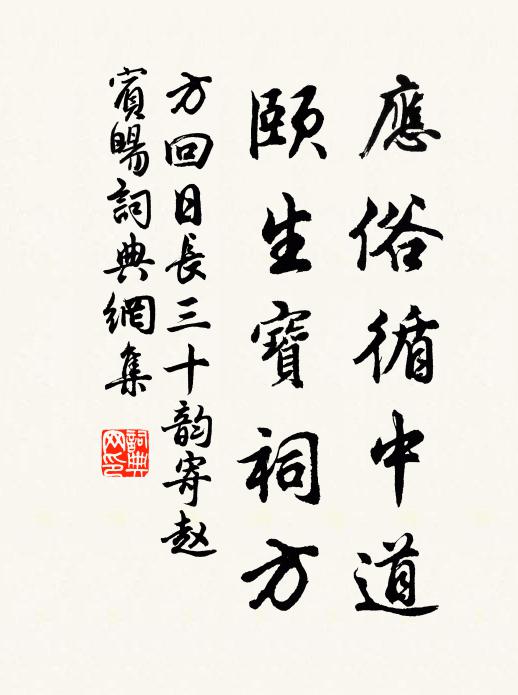 應俗循中道
頤生寶祠方
方回日長三十韵寄赵
賓暘詞典網集
詞典网印